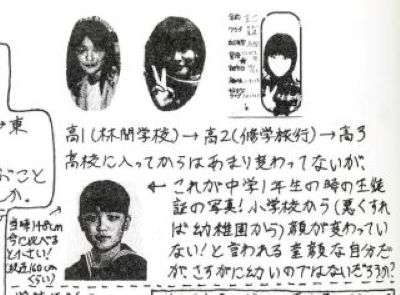 高1(林間学校)→高2(修学旅行)→高3
高校に入ってからはあまり変わってないが、
← これが中学1年生の時の生徒
証の写真!小学校から(悪くすれ
ば幼稚園から)顔が変わってい
ない!と言われる童顔な自分だ
が、さすがに幼いのではないだろうか?
→東
こと
か。
当時148cm
今に比べる
と小さい!
(現在160cm
くらい)